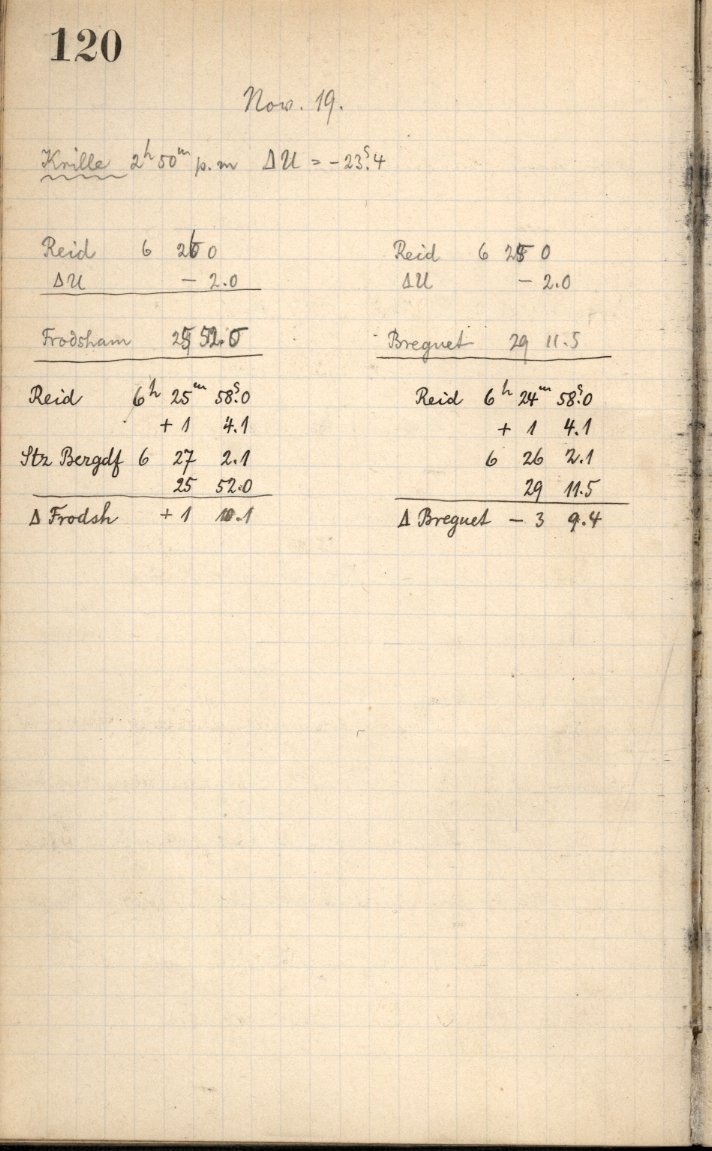 120
Nov. 19.
Krille 2ʰ 50ᵐ p.m ΔU = -23ˢ.4
Reid 6 26 0
ΔU - 2.0
Frodsham 25 52.0
Reid 6ʰ 25ᵐ 58ˢ.0
+ 1 4.1
Stz Bergdf 6 27 2.1
25 52.0
Δ Frodsh + 1 10.1
Reid 6 25 0
ΔU - 2.0
Breguet 29 11.5
Reid 6ʰ 24ᵐ 58ˢ.0
+ 1 4.1
6 26 2.1
29 11.5
Δ Breguet - 3 9.4